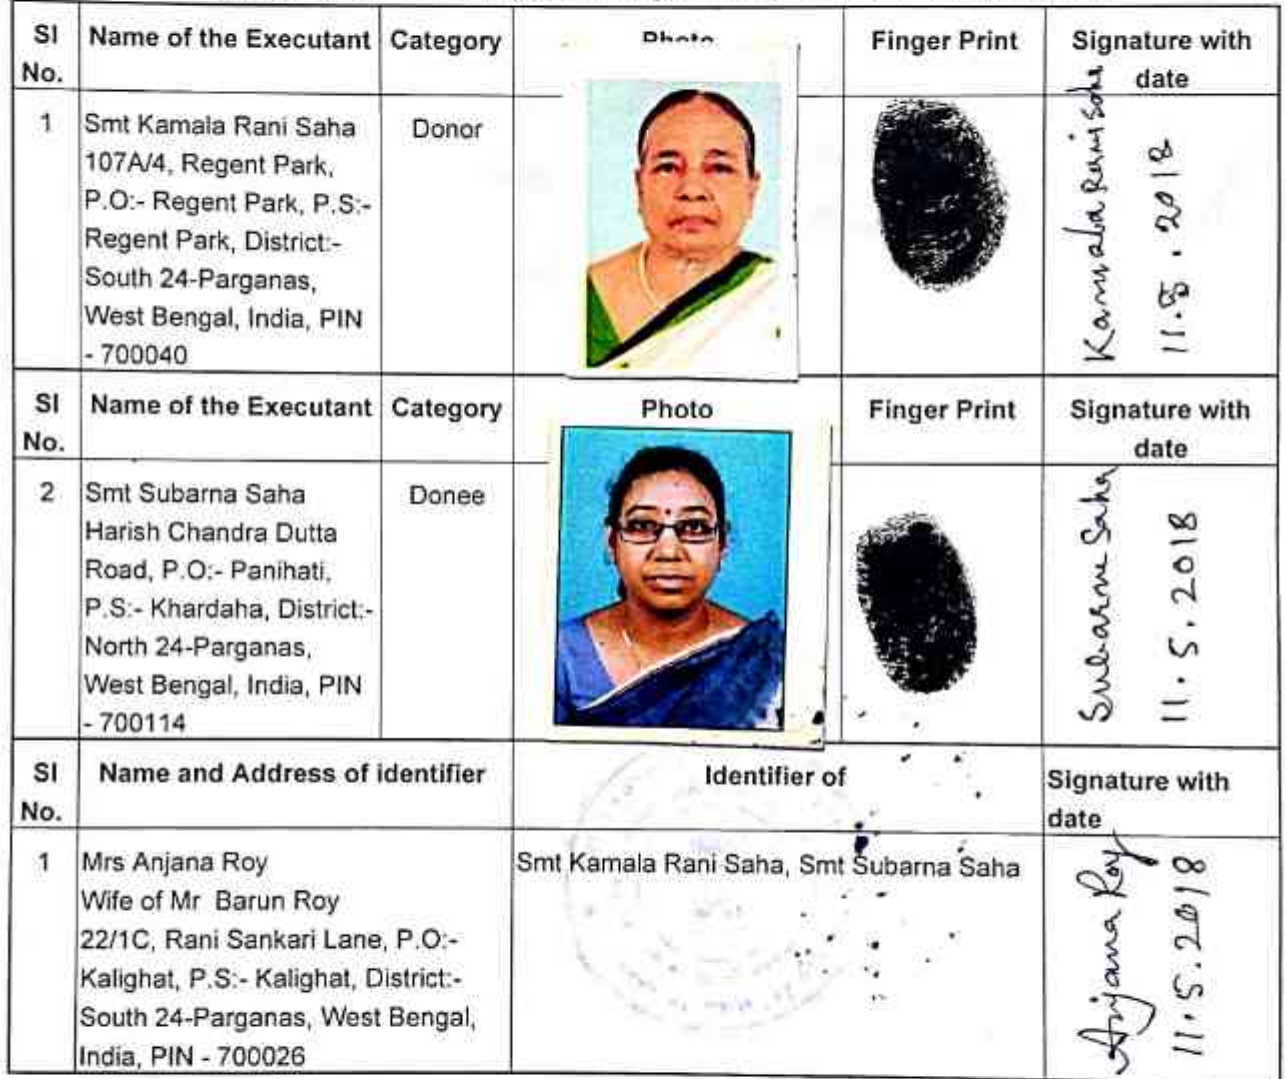 SI No. Name of the Executant Category Photo Finger Print Signature with date
1 Smt Kamala Rani Saha Donor
107A/4, Regent Park,
P.O:- Regent Park, P.S:-
Regent Park, District:-
South 24-Parganas,
West Bengal, India, PIN
- 700040
Kamala Rani Saha
11.5.2018
SI No. Name of the Executant Category Photo Finger Print Signature with date
2 Smt Subarna Saha Donee
Harish Chandra Dutta
Road, P.O:- Panihati,
P.S:- Khardaha, District:-
North 24-Parganas,
West Bengal, India, PIN
- 700114
Subarna Saha
11.5.2018
SI No. Name and Address of identifier Identifier of Signature with date
1 Mrs Anjana Roy Smt Kamala Rani Saha, Smt Subarna Saha
Wife of Mr Barun Roy
22/1C, Rani Sankari Lane, P.O:-
Kalighat, P.S:- Kalighat, District:-
South 24-Parganas, West Bengal,
India, PIN - 700026
Anjana Roy
11.5.2018